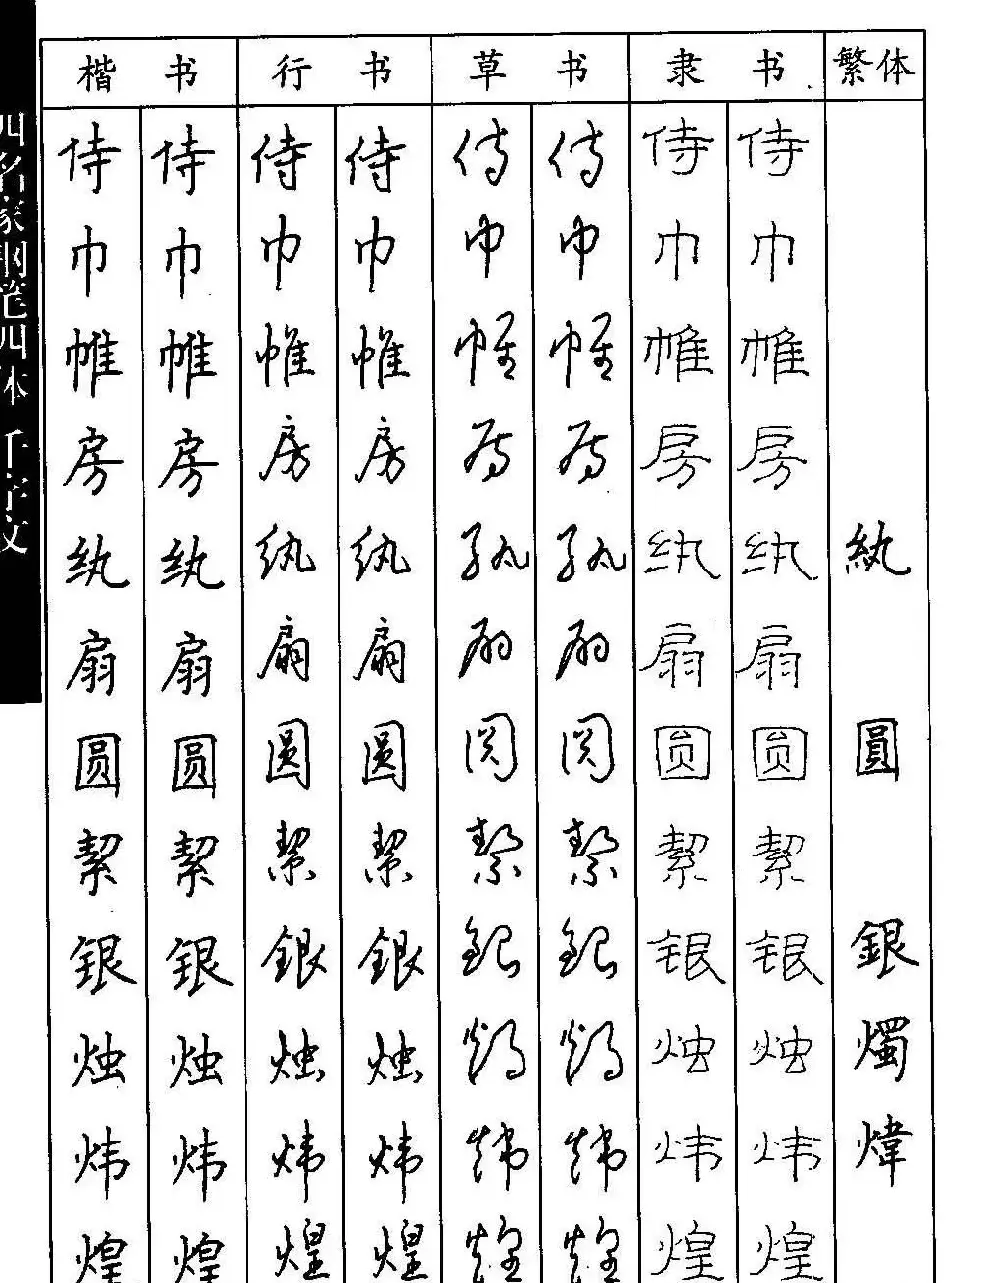 楷书 行书 草书 隶书 繁体
侍 侍 侍 侍 侍 侍 侍 侍
巾 巾 巾 巾 巾 巾 巾 巾
帷 帷 帷 帷 帷 帷 帷 帷
房 房 房 房 房 房 房 房
纨 纨 纨 纨 纨 纨 纨 纨 紈
扇 扇 扇 扇 扇 扇 扇 扇
圆 圆 圆 圆 圆 圆 圆 圆 圓
絜 絜 絜 絜 絜 絜 絜 絜
银 银 银 银 银 银 银 银 銀
烛 烛 烛 烛 烛 烛 烛 烛 燭
炜 炜 炜 炜 炜 炜 炜 炜 煒
煌 煌 煌 煌 煌 煌 煌 煌
四名家钢笔四体千字文